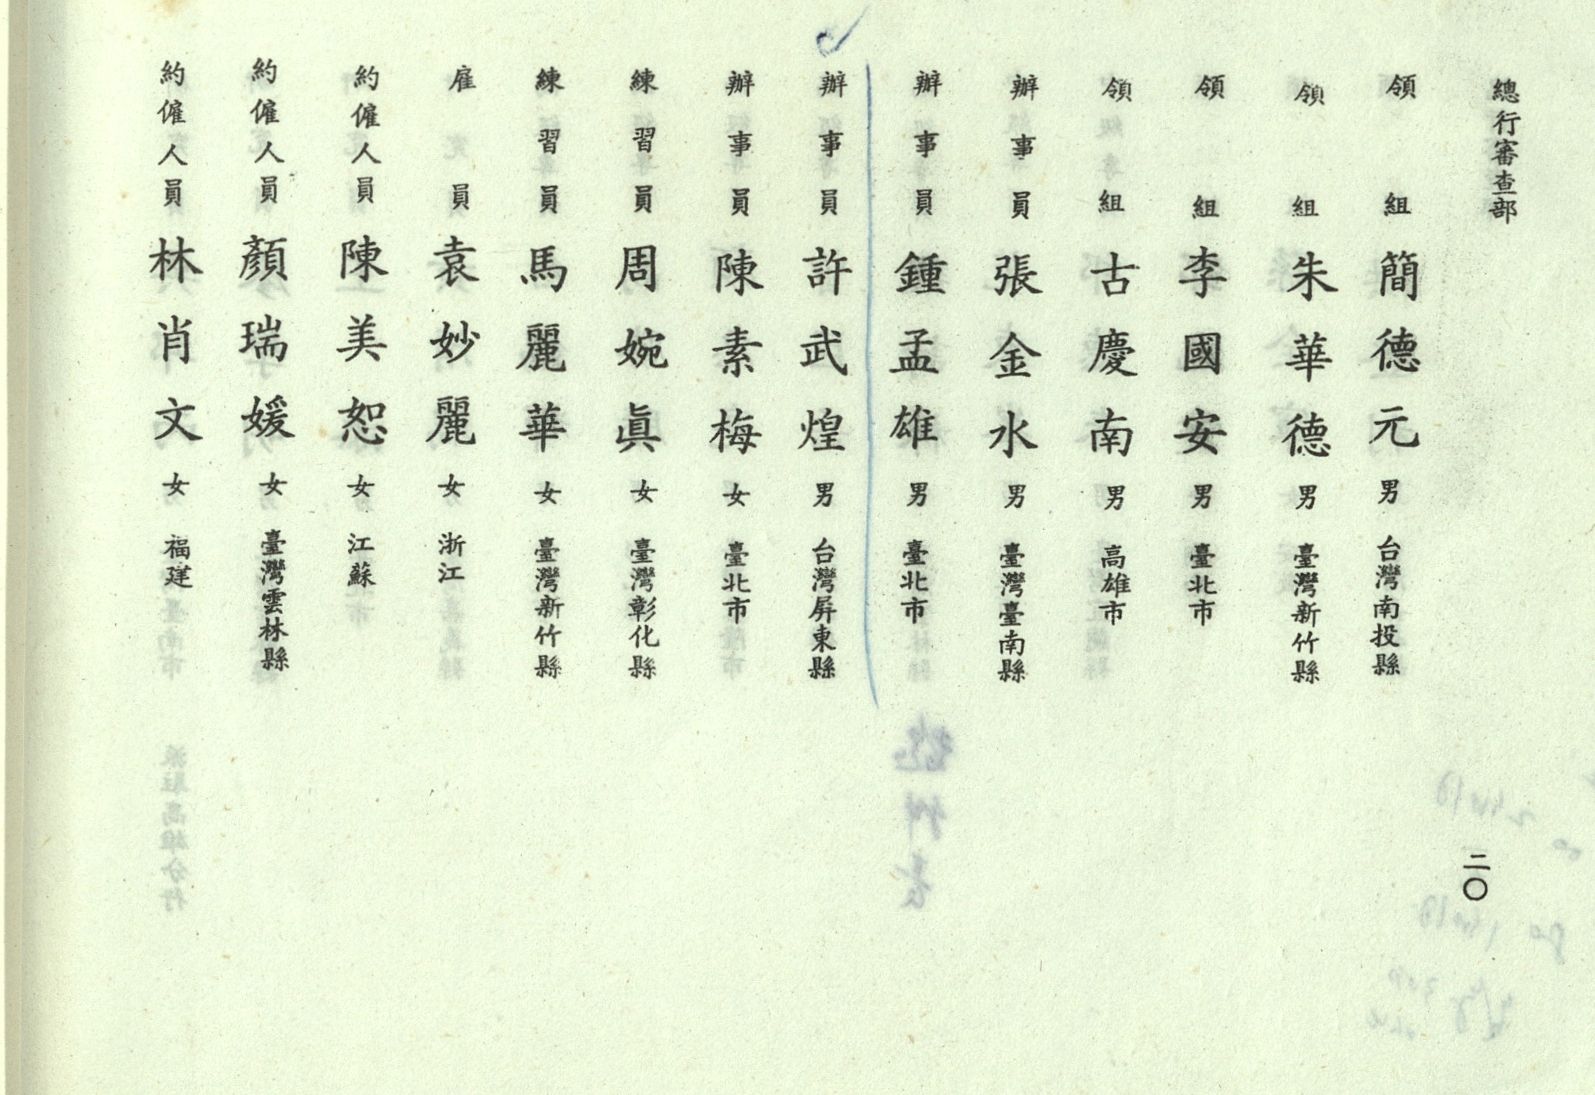 總行審查部
領組 簡德元 男 台灣南投縣
領組 朱華德 男 臺灣新竹縣
領組 李國安 男 臺北市
領組 古慶南 男 高雄市
辦事員 張金水 男 臺灣臺南縣
辦事員 鍾孟雄 男 臺北市
辦事員 許武煌 男 台灣屏東縣
辦事員 陳素梅 女 臺北市
練習員 周婉眞 女 臺灣彰化縣
練習員 馬麗華 女 臺灣新竹縣
雇員 袁妙麗 女 浙江
約僱人員 陳美恕 女 江蘇
約僱人員 顏瑞媛 女 臺灣雲林縣
約僱人員 林肖文 女 福建
二〇